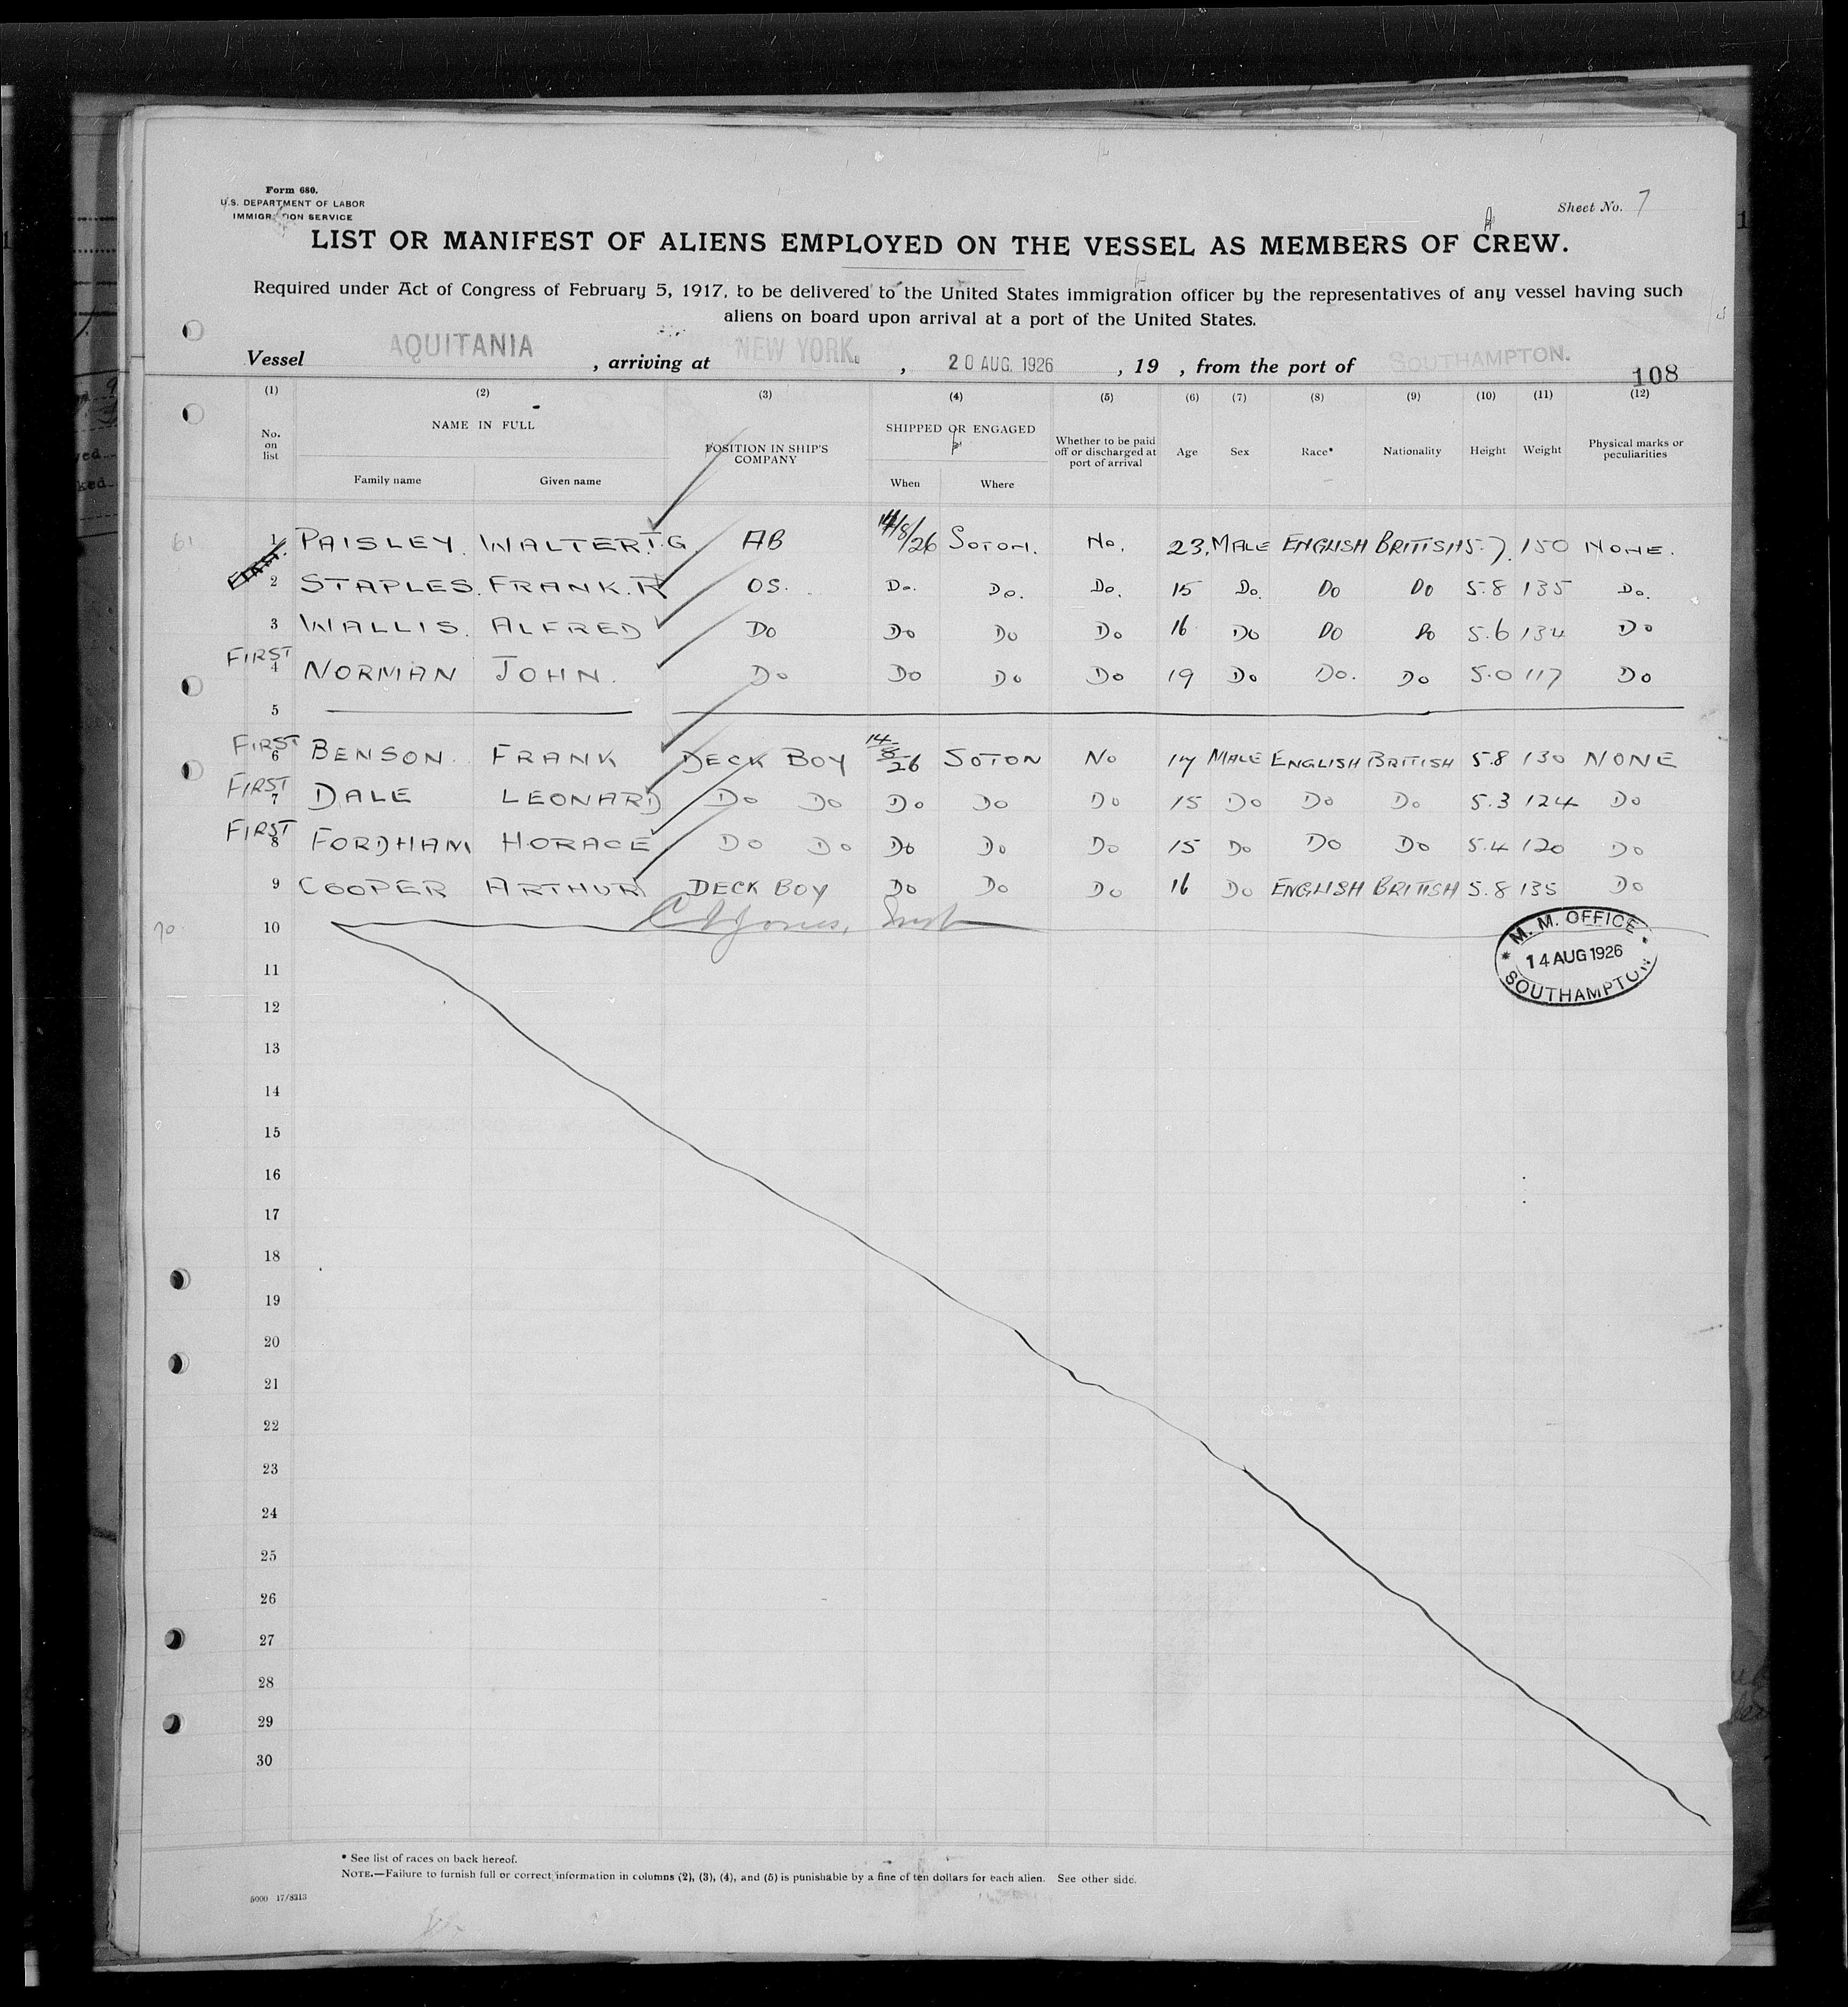 Form 680.
U.S. DEPARTMENT OF LABOR
IMMIGRATION SERVICE
Sheet No. 7
LIST OR MANIFEST OF ALIENS EMPLOYED ON THE VESSEL AS MEMBERS OF CREW.
Required under Act of Congress of February 5, 1917, to be delivered to the United States immigration officer by the representatives of any vessel having such
aliens on board upon arrival at a port of the United States.
Vessel AQUITANIA , arriving at NEW YORK. , 20 AUG. 1926 , 19 , from the port of SOUTHAMPTON.
108
(1) (2) (3) (4) (5) (6) (7) (8) (9) (10) (11) (12)
No. on list NAME IN FULL Family name Given name POSITION IN SHIP'S COMPANY SHIPPED OR ENGAGED When Where Whether to be paid off or discharged at port of arrival Age Sex Race* Nationality Height Weight Physical marks or peculiarities
61 1 PAISLEY. WALTER.T.G. AB 14/8/26 SOTON. No. 23. MALE ENGLISH BRITISH 5.7. 150 NONE.
2 STAPLES. FRANK.R OS. Do. Do. Do. 15 Do. Do Do 5.8 135 Do.
3 WALLIS. ALFRED Do Do Do Do 16 Do Do Do 5.6 134 Do
FIRST 4 NORMAN JOHN. Do Do Do Do 19 Do Do. Do 5.0 117 Do
5
FIRST 6 BENSON. FRANK DECK BOY 14/8/26 SOTON No 17 MALE ENGLISH BRITISH 5.8 130 NONE
FIRST 7 DALE LEONARD Do Do Do Do Do 15 Do Do Do 5.3 124 Do
FIRST 8 FORDHAM HORACE Do Do Do Do Do 15 Do Do Do 5.4 120 Do
9 COOPER ARTHUR DECK BOY Do Do Do 16 Do ENGLISH BRITISH 5.8 135 Do
70 10
M. M. OFFICE
14 AUG 1926
SOUTHAMPTON
11
12
13
14
15
16
17
18
19
20
21
22
23
24
25
26
27
28
29
30
* See list of races on back hereof.
NOTE.—Failure to furnish full or correct information in columns (2), (3), (4), and (5) is punishable by a fine of ten dollars for each alien. See other side.
5000 17/8213